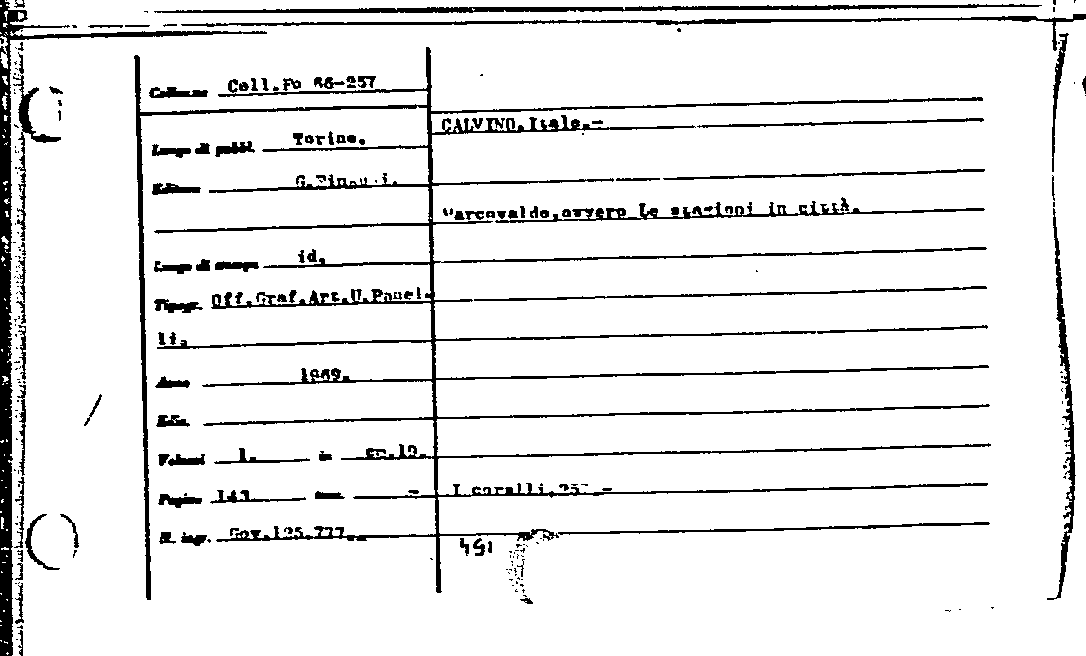 Collocaz. Coll.Po 66-257
CALVINO, Italo.-
Luogo di pubbl. Torino.
Editore G.Einaudi.
Marcovaldo,ovvero Le stagioni in città.
Luogo di stampa id.
Tipogr. Off.Graf.Art.U.Panel-
li.
Anno 1969.
Ediz.
Volumi 1. in cm.19.
Pagine 143 tav. -
I coralli,25 .-
N. ingr. Gov.125.777.